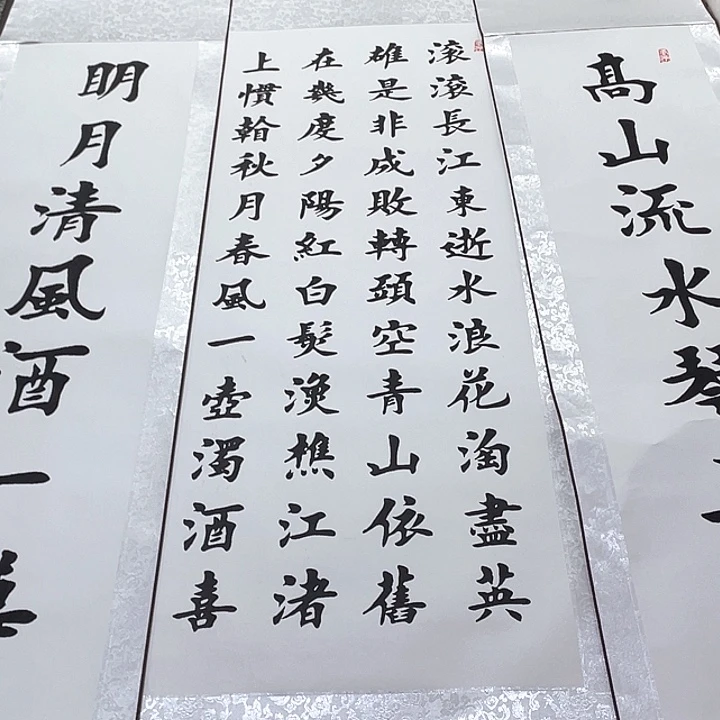 高山流水琴
滚滚長江東逝水浪花淘盡英
雄是非成敗轉頭空青山依舊
在幾度夕陽紅白髮漁樵江渚
上慣看秋月春風一壺濁酒喜
明月清風酒一